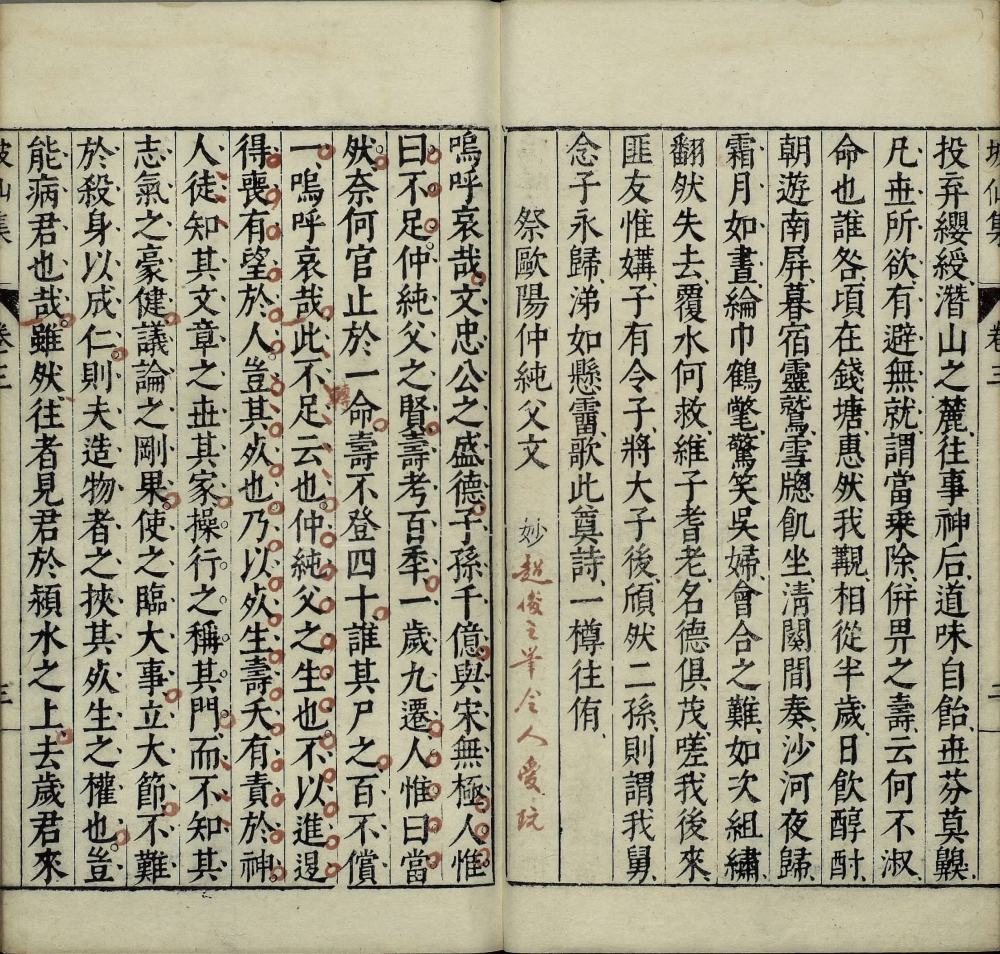 坡仙集
卷三
二
投弃纓綬潛山之麓往事神后道味自飴世芬莫齅
凡世所欲有避無就謂當乗除併畀之壽云何不淑
命也誰咎頃在錢塘惠然我覯相從半歲日飲醇酎
朝遊南屏暮宿靈鷲雪牕飢坐清闋間奏沙河夜歸
霜月如晝綸巾鶴氅驚笑吳婦會合之難如次組繡
翻然失去覆水何救維子耆老名德俱茂嗟我後來
匪友惟媾子有令子將大子後頎然二孫則謂我舅
念子永歸涕如懸霤歌此奠詩一樽往侑
祭歐陽仲純父文
妙
超俊之筆令人愛玩
嗚呼哀哉文忠公之盛德子孫千億與宋無極人惟
曰不足仲純父之賢壽考百年一歲九遷人惟曰當
然奈何官止於一命壽不登四十誰其尸之百不償
一嗚呼哀哉此不足云也仲純父之生也不以進退
轉
得喪有望於人豈其死也乃以死生壽夭有責於神
人徒知其文章之世其家操行之稱其門而不知其
志氣之豪健議論之剛果使之臨大事立大節不難
於殺身以成仁則夫造物者之挾其死生之權也豈
能病君也哉雖然往者見君於潁水之上去歲君來
坡仙集
卷三
三